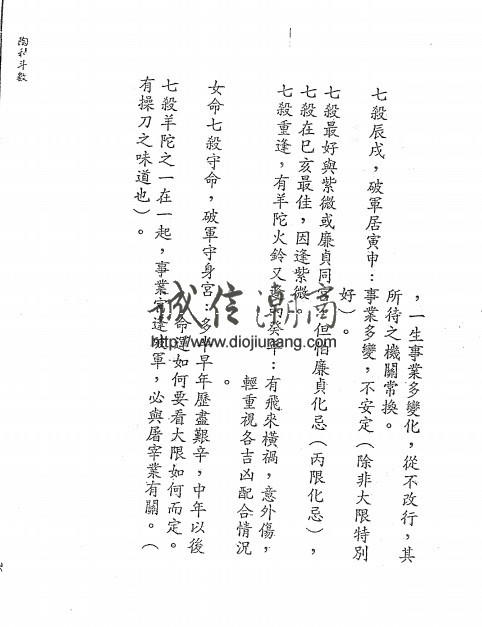 ，一生事業多變化，從不改行，其
所待之機關常換。
七殺辰戌，破軍居寅申：事業多變，不安定（除非大限特別
好）。
七殺最好與紫微或廉貞同宮，但怕廉貞化忌（丙限化忌），
七殺在巳亥最佳，因逢紫微。
七殺重逢，有羊陀火鈴又癸年：有飛來橫禍，意外傷，
輕重視各吉凶配合情況
。
女命七殺守命，破軍守身宮：多半早年歷盡艱辛，中年以後
命運如何要看大限如何而定。
七殺羊陀之一在一起，事業宮逢破軍，必與屠宰業有關。（
有操刀之味道也）。
斗數
誠信潮高
http://www.diojiunang.com